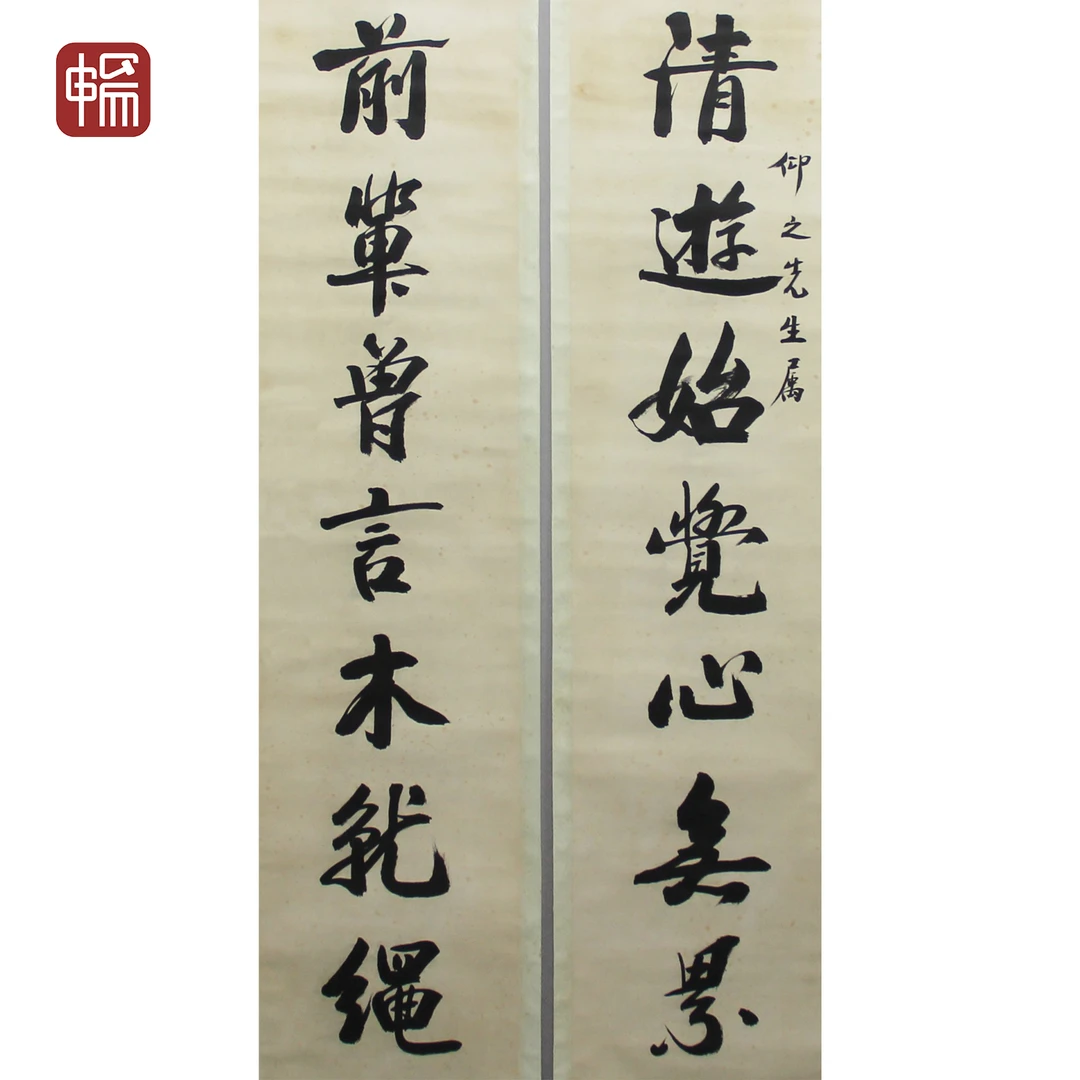 仰之先生属
清遊始覺心無累
前輩曾言木就繩